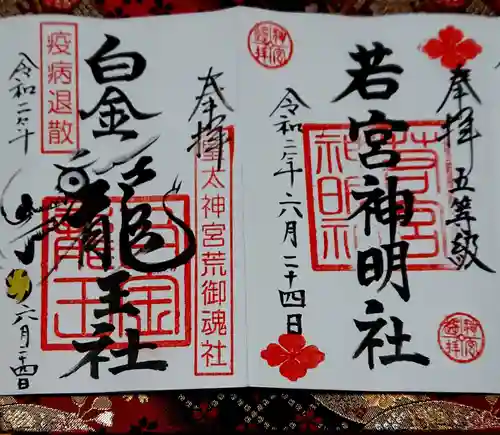 奉拝
五等級
若宮神明社
若宮神明社
令和二年六月二十四日
奉拝
皇太神宮荒御魂社
白金龍王社
白金龍王
疫病退散
令和二年
六月二十四日